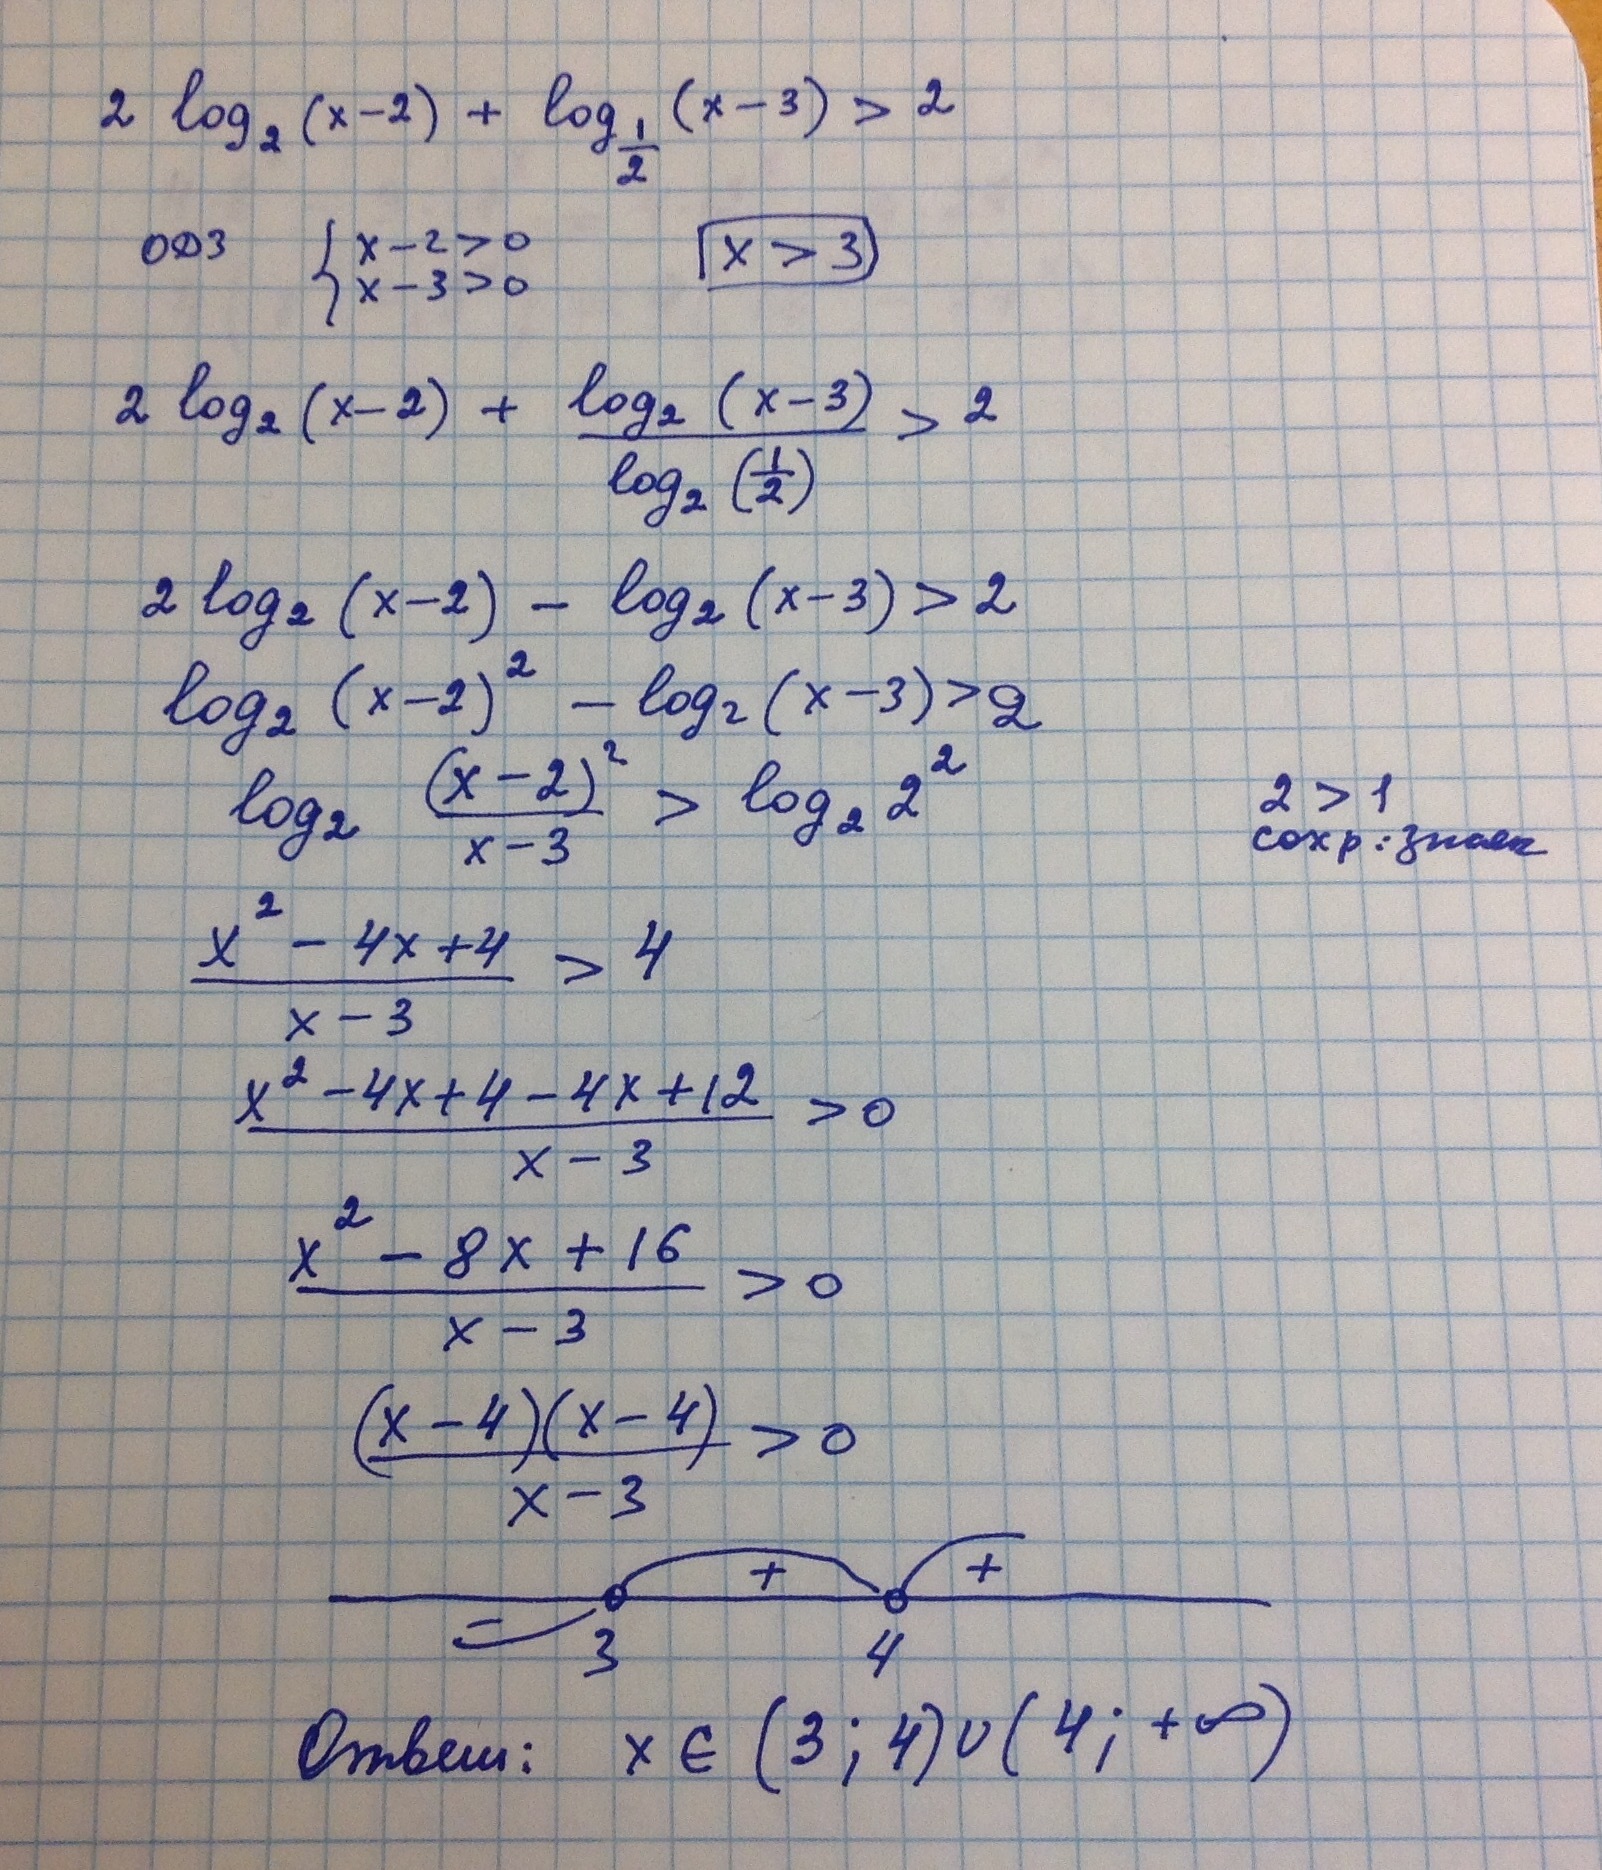 2 log₂ (x-2) + log_{1/2} (x-3) > 2
ОДЗ { x-2>0 x-3>0 x > 3
2 log₂ (x-2) + log₂ (x-3) / log₂ (1/2) > 2
2 log₂ (x-2) - log₂ (x-3) > 2
log₂ (x-2)² - log₂ (x-3) > 2
log₂ (x-2)² / (x-3) > log₂ 2² 2 > 1
сохр. знак
(x² - 4x + 4) / (x - 3) > 4
(x² - 4x + 4 - 4x + 12) / (x - 3) > 0
(x² - 8x + 16) / (x - 3) > 0
(x - 4)(x - 4) / (x - 3) > 0
- + +
3 4
Ответ: x ∈ (3; 4) ∪ (4; +∞)